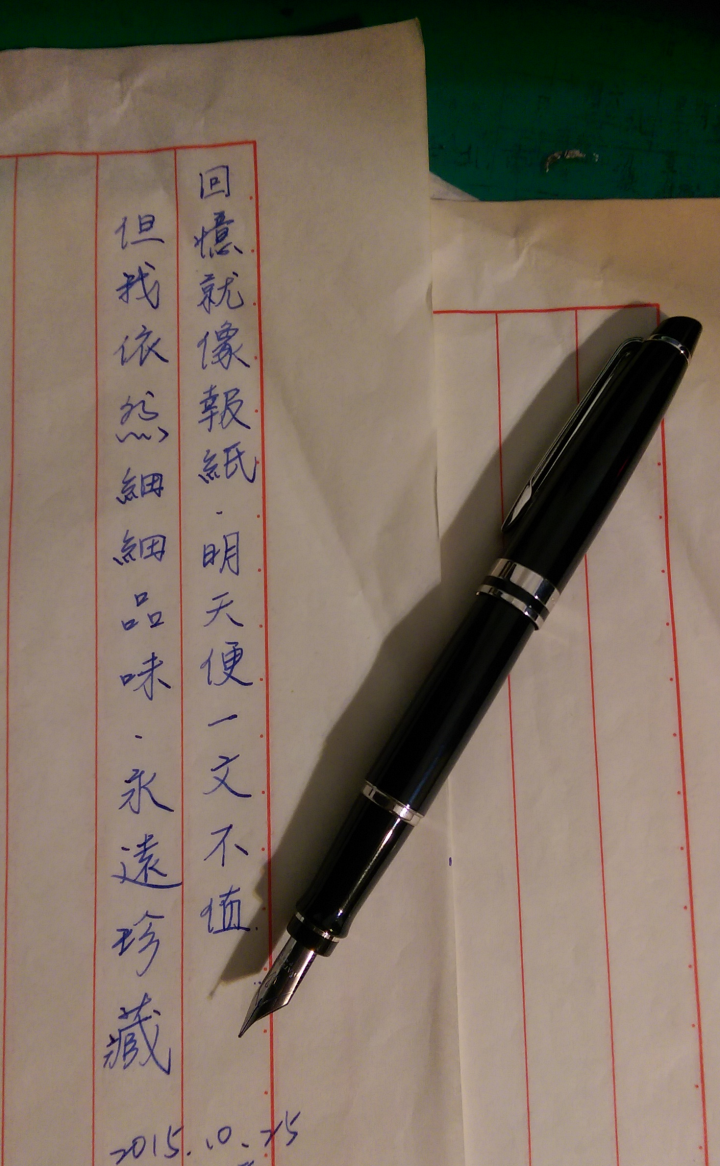 回憶就像報紙．明天便一文不值
但我依然細細品味．永遠珍藏
2015.10.25